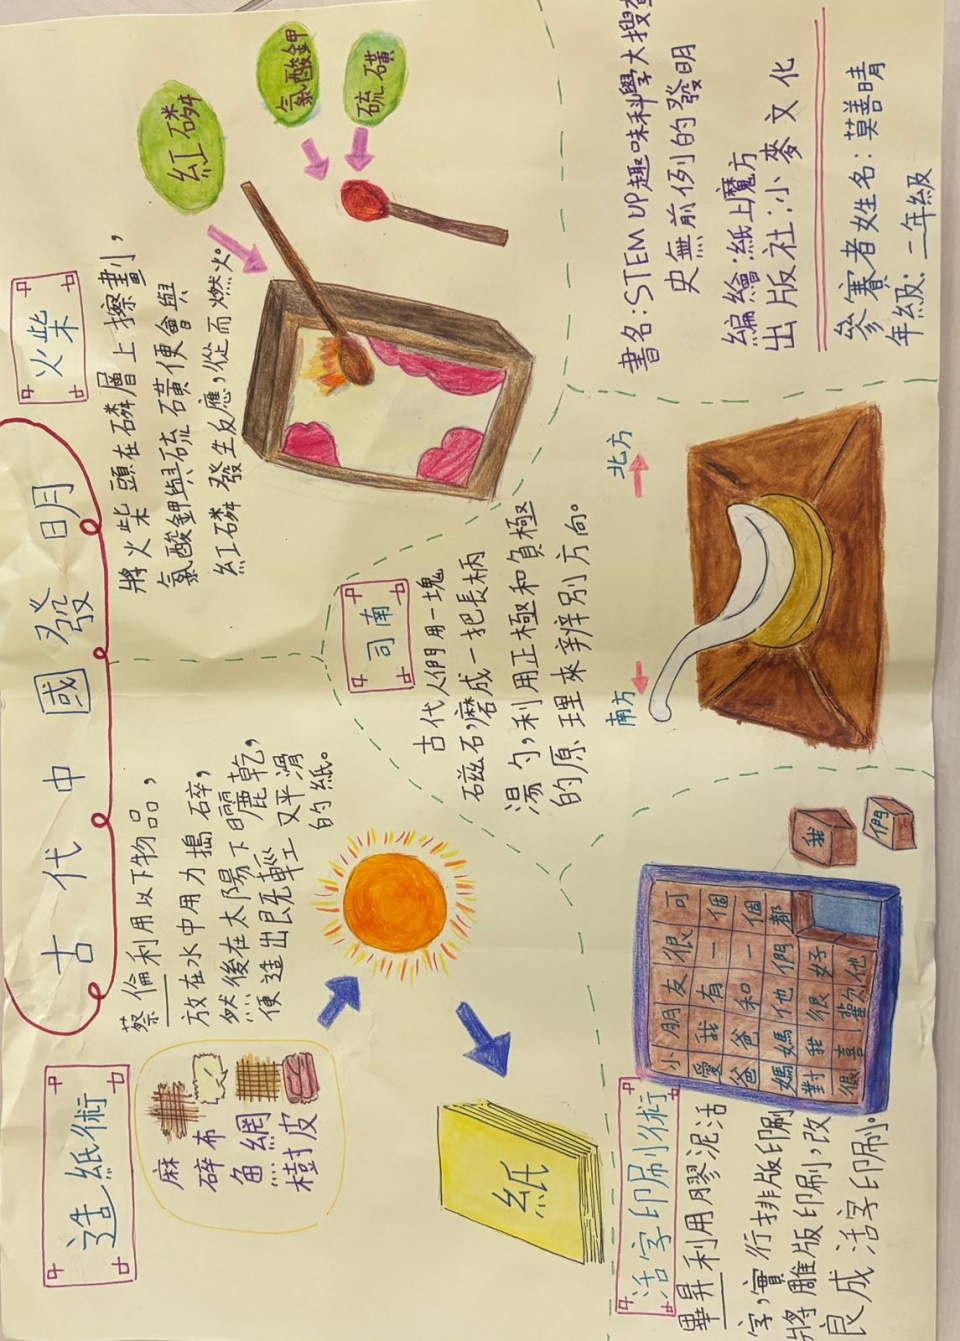 古代中國發明
造紙術
麻
碎布
魚網
樹皮
蔡倫利用以下物品，
放在水中用力搗碎，
然後在太陽下曬乾，
便造出既輕又平滑
的紙。
紙
火柴
將火柴頭在磷層上擦劃，
氯酸鉀與硫磺便會與
紅磷發生反應，從而燃火。
紅磷
氯酸鉀
硫磺
司南
古代人們用一塊
磁石，磨成一把長柄
湯勺，利用正極和負極
的原理來辨別方向。
南方
北方
活字印刷術
畢昇利用膠泥活
字，實行排版印刷
將雕版印刷，改
良成活字印刷。
小朋友很可
愛我有一個
爸爸和一個
媽媽他們都
對我很好
很喜歡他
我
們
書名：STEM UP趣味科學大搜查
史無前例的發明
編繪：紙上魔方
出版社：小麥文化
參賽者姓名：莫善晴
年級：二年級